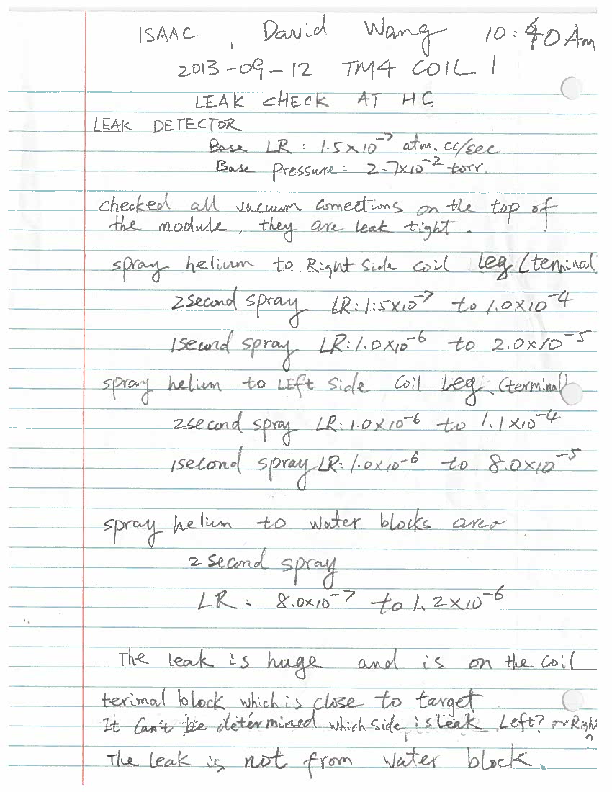 ISAAC, David Wang 10:40 Am
2013-09-12 TM4 COIL 1
LEAK CHECK AT HC
LEAK DETECTOR
Base LR: 1.5x10⁻⁷ atm. cc/sec
Base Pressure: 2.7x10⁻² torr.
checked all vacuum connections on the top of
the module, they are leak tight.
spray helium to Right side coil leg (terminal
2second spray LR: 1.5x10⁻⁷ to 1.0x10⁻⁴
1second spray LR: 1.0x10⁻⁶ to 2.0x10⁻⁵
spray helium to Left side coil leg (terminal)
2second spray LR: 1.0x10⁻⁶ to 1.1x10⁻⁴
1second spray LR: 1.0x10⁻⁶ to 8.0x10⁻⁵
spray helium to water blocks area
2 second spray
LR: 8.0x10⁻⁷ to 1.2x10⁻⁶
The leak is huge and is on the coil
terimal block which is close to target
It can't be determined which side is leak Left? or Right?
The leak is not from water block.